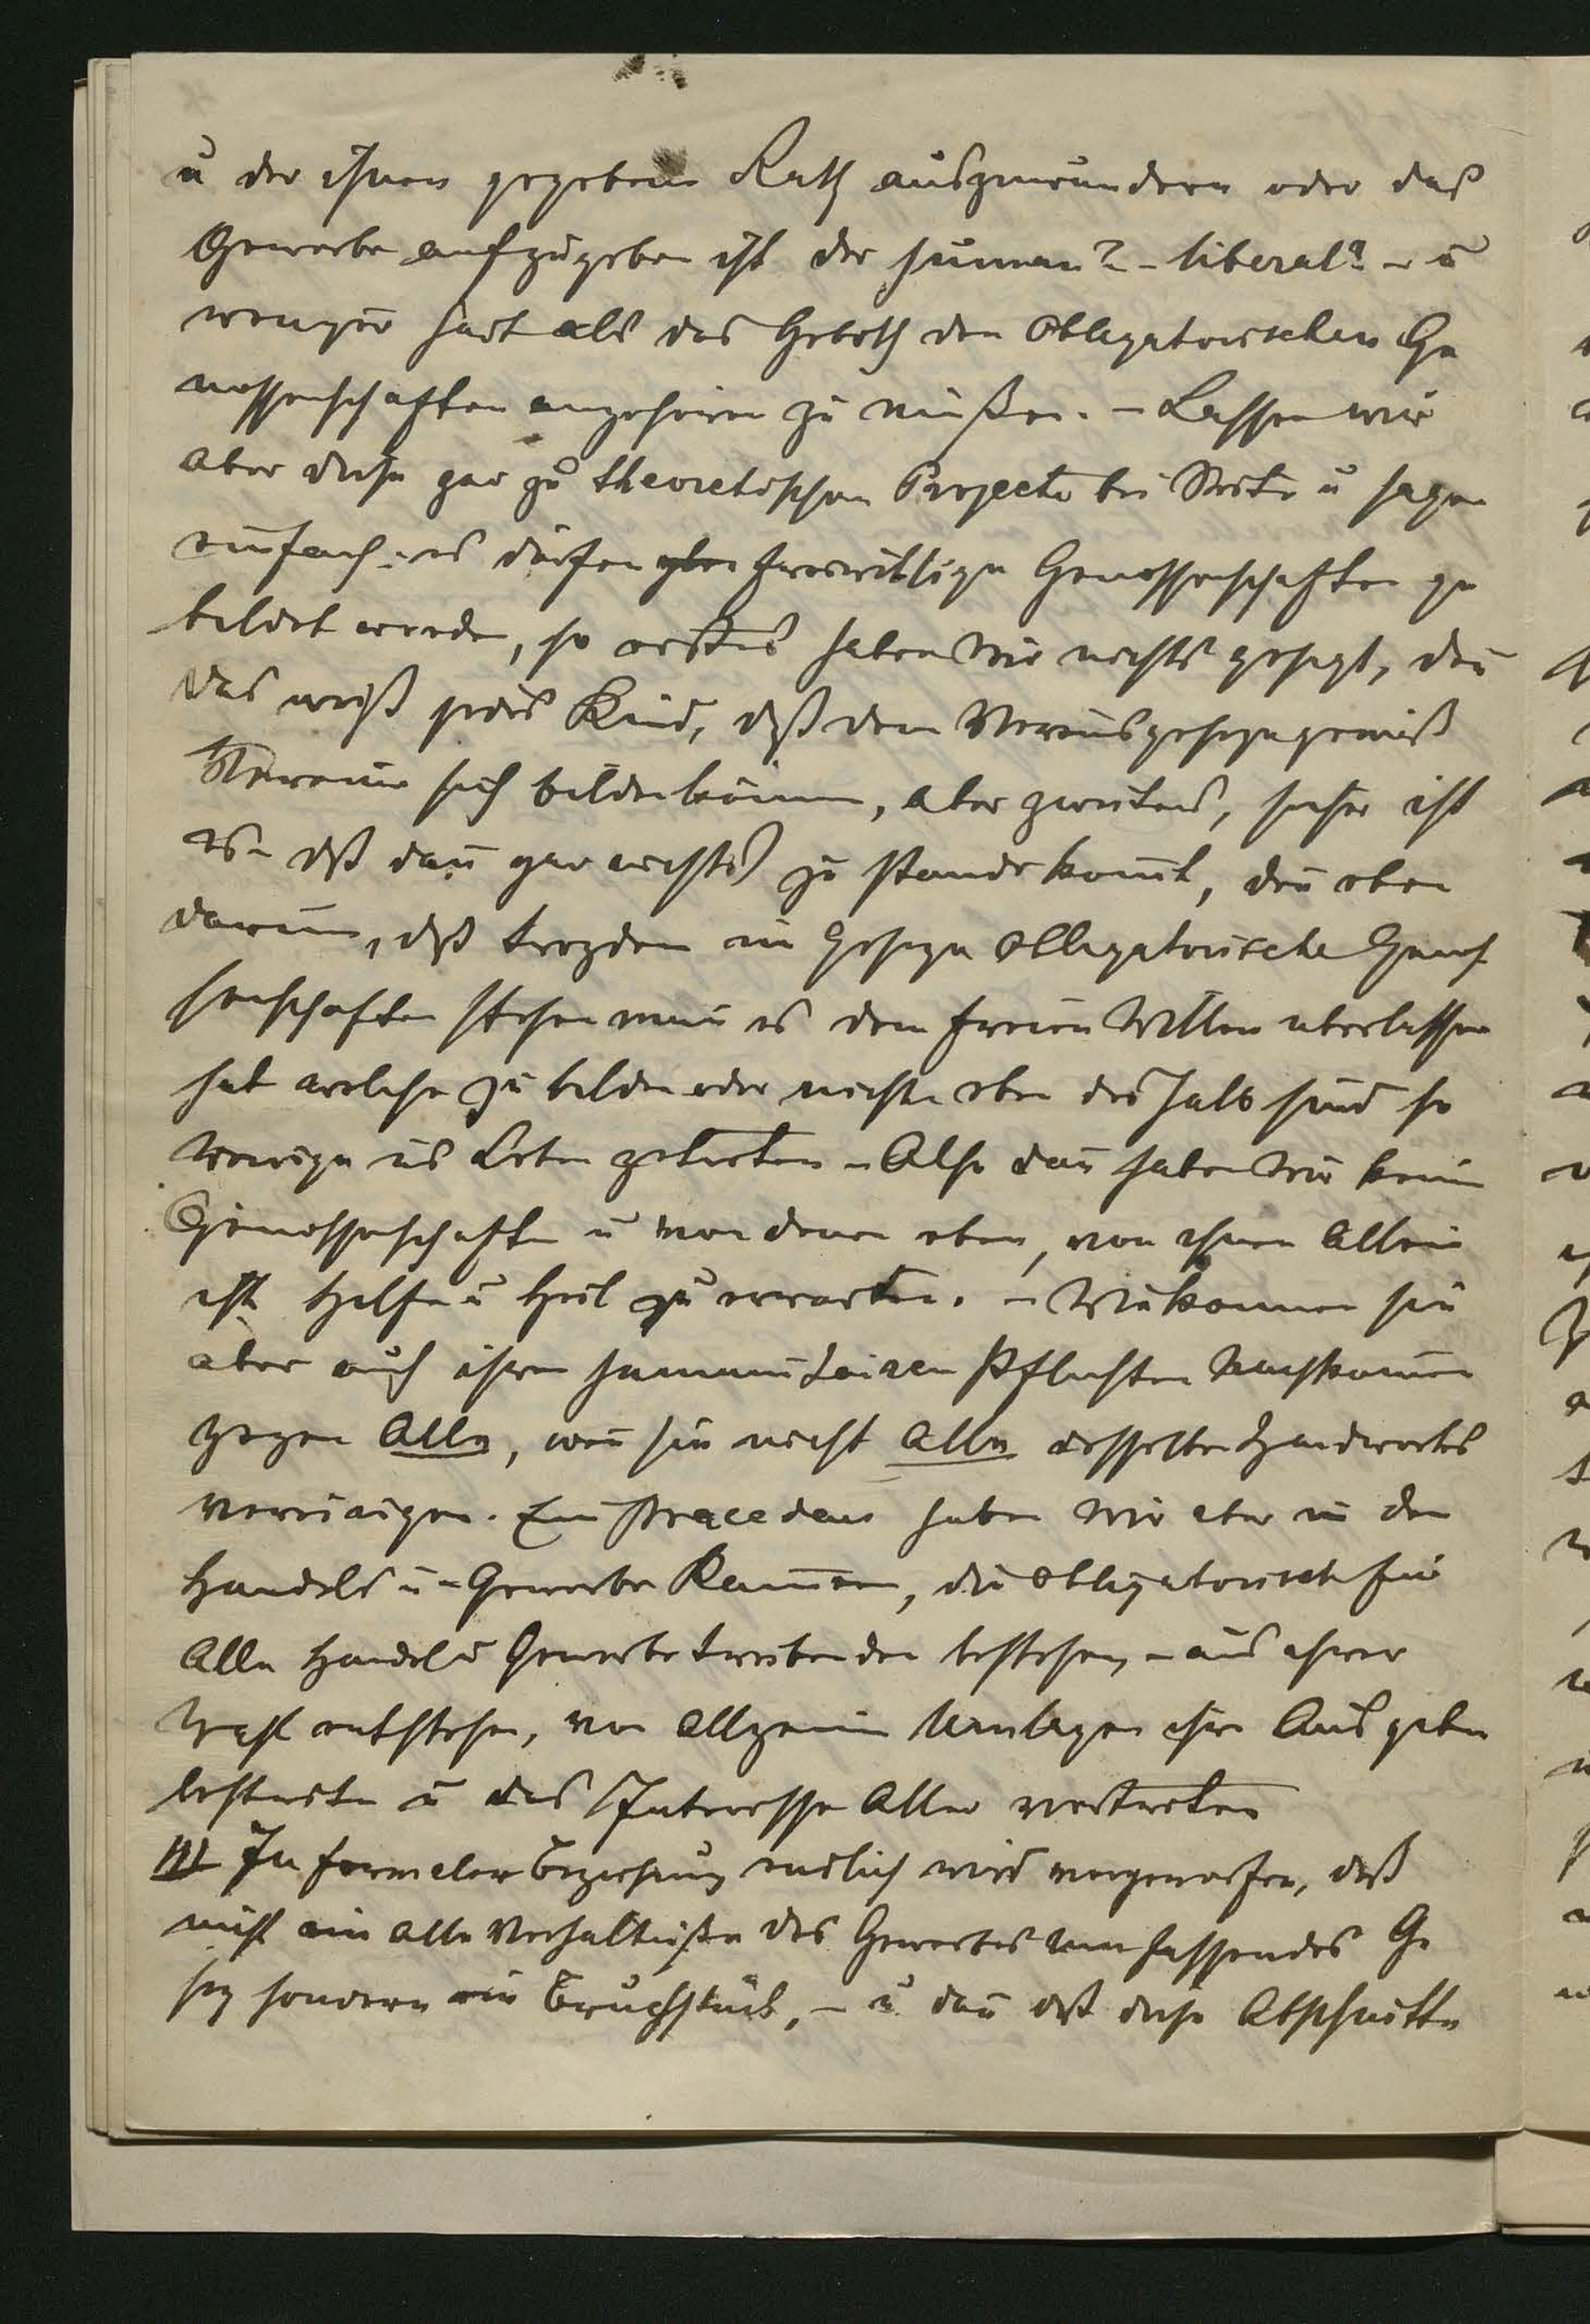 u der ihnen gegebene Rath auszuwandern oder das
Gewerbe aufzugeben ist der human? – liberal? – u
weniger hart als das Geboth den obligatorischen Ge
nossenschaften angehören zu müßen. – Lassen wir
aber diese gar zu theoretischen Projecte bei Seite u sagen
einfach: es dürfen freiwillige Genossenschaften ge
bildet werden, so erstens haben wir nichts gesagt, den
das weiß jedes Kind, daß dem Vereinsgeseze gemäß
Vereine sich bilden könen, aber zweitens, sicher ist
es – dß dan gar nichts zu stande komt, den eben
darum, dß trozdem im Geseze obligatorische Genos
senschaften stehen man es dem freien Willen uberlassen
hat welche zu bilden oder nicht – eben deshalb sind so
wenige ins Leben getreten – Also dan haben wir keine
Genossenschaften u von denen eben, von ihnen allein
ist Hilfe u Heil zu erwarten. – Wie können sie
aber auch ihren humanitairen Pflichten nachkomen
gegen Alle, wen sie nicht Alle desselben Handwerkes
vereinigen. Ein Precedens haben wir aber in den
Handels u – Gewerbe Kamern, die obligatorisch für
Alle Handel u Gewerbetreibenden bestehen, – aus ihrer
Wahl entstehen, von allgemein Umlagen ihre Ausgaben
bestreiten u das Interesse Aller vertreten
III In formeler Beziehung endlich wird vorgeworfen, daß
nicht ein alle Verhältniße des Gewerbes umfassendes Ge
sez sondern ein Bruchstück, – u dan dß diese Abschnitte